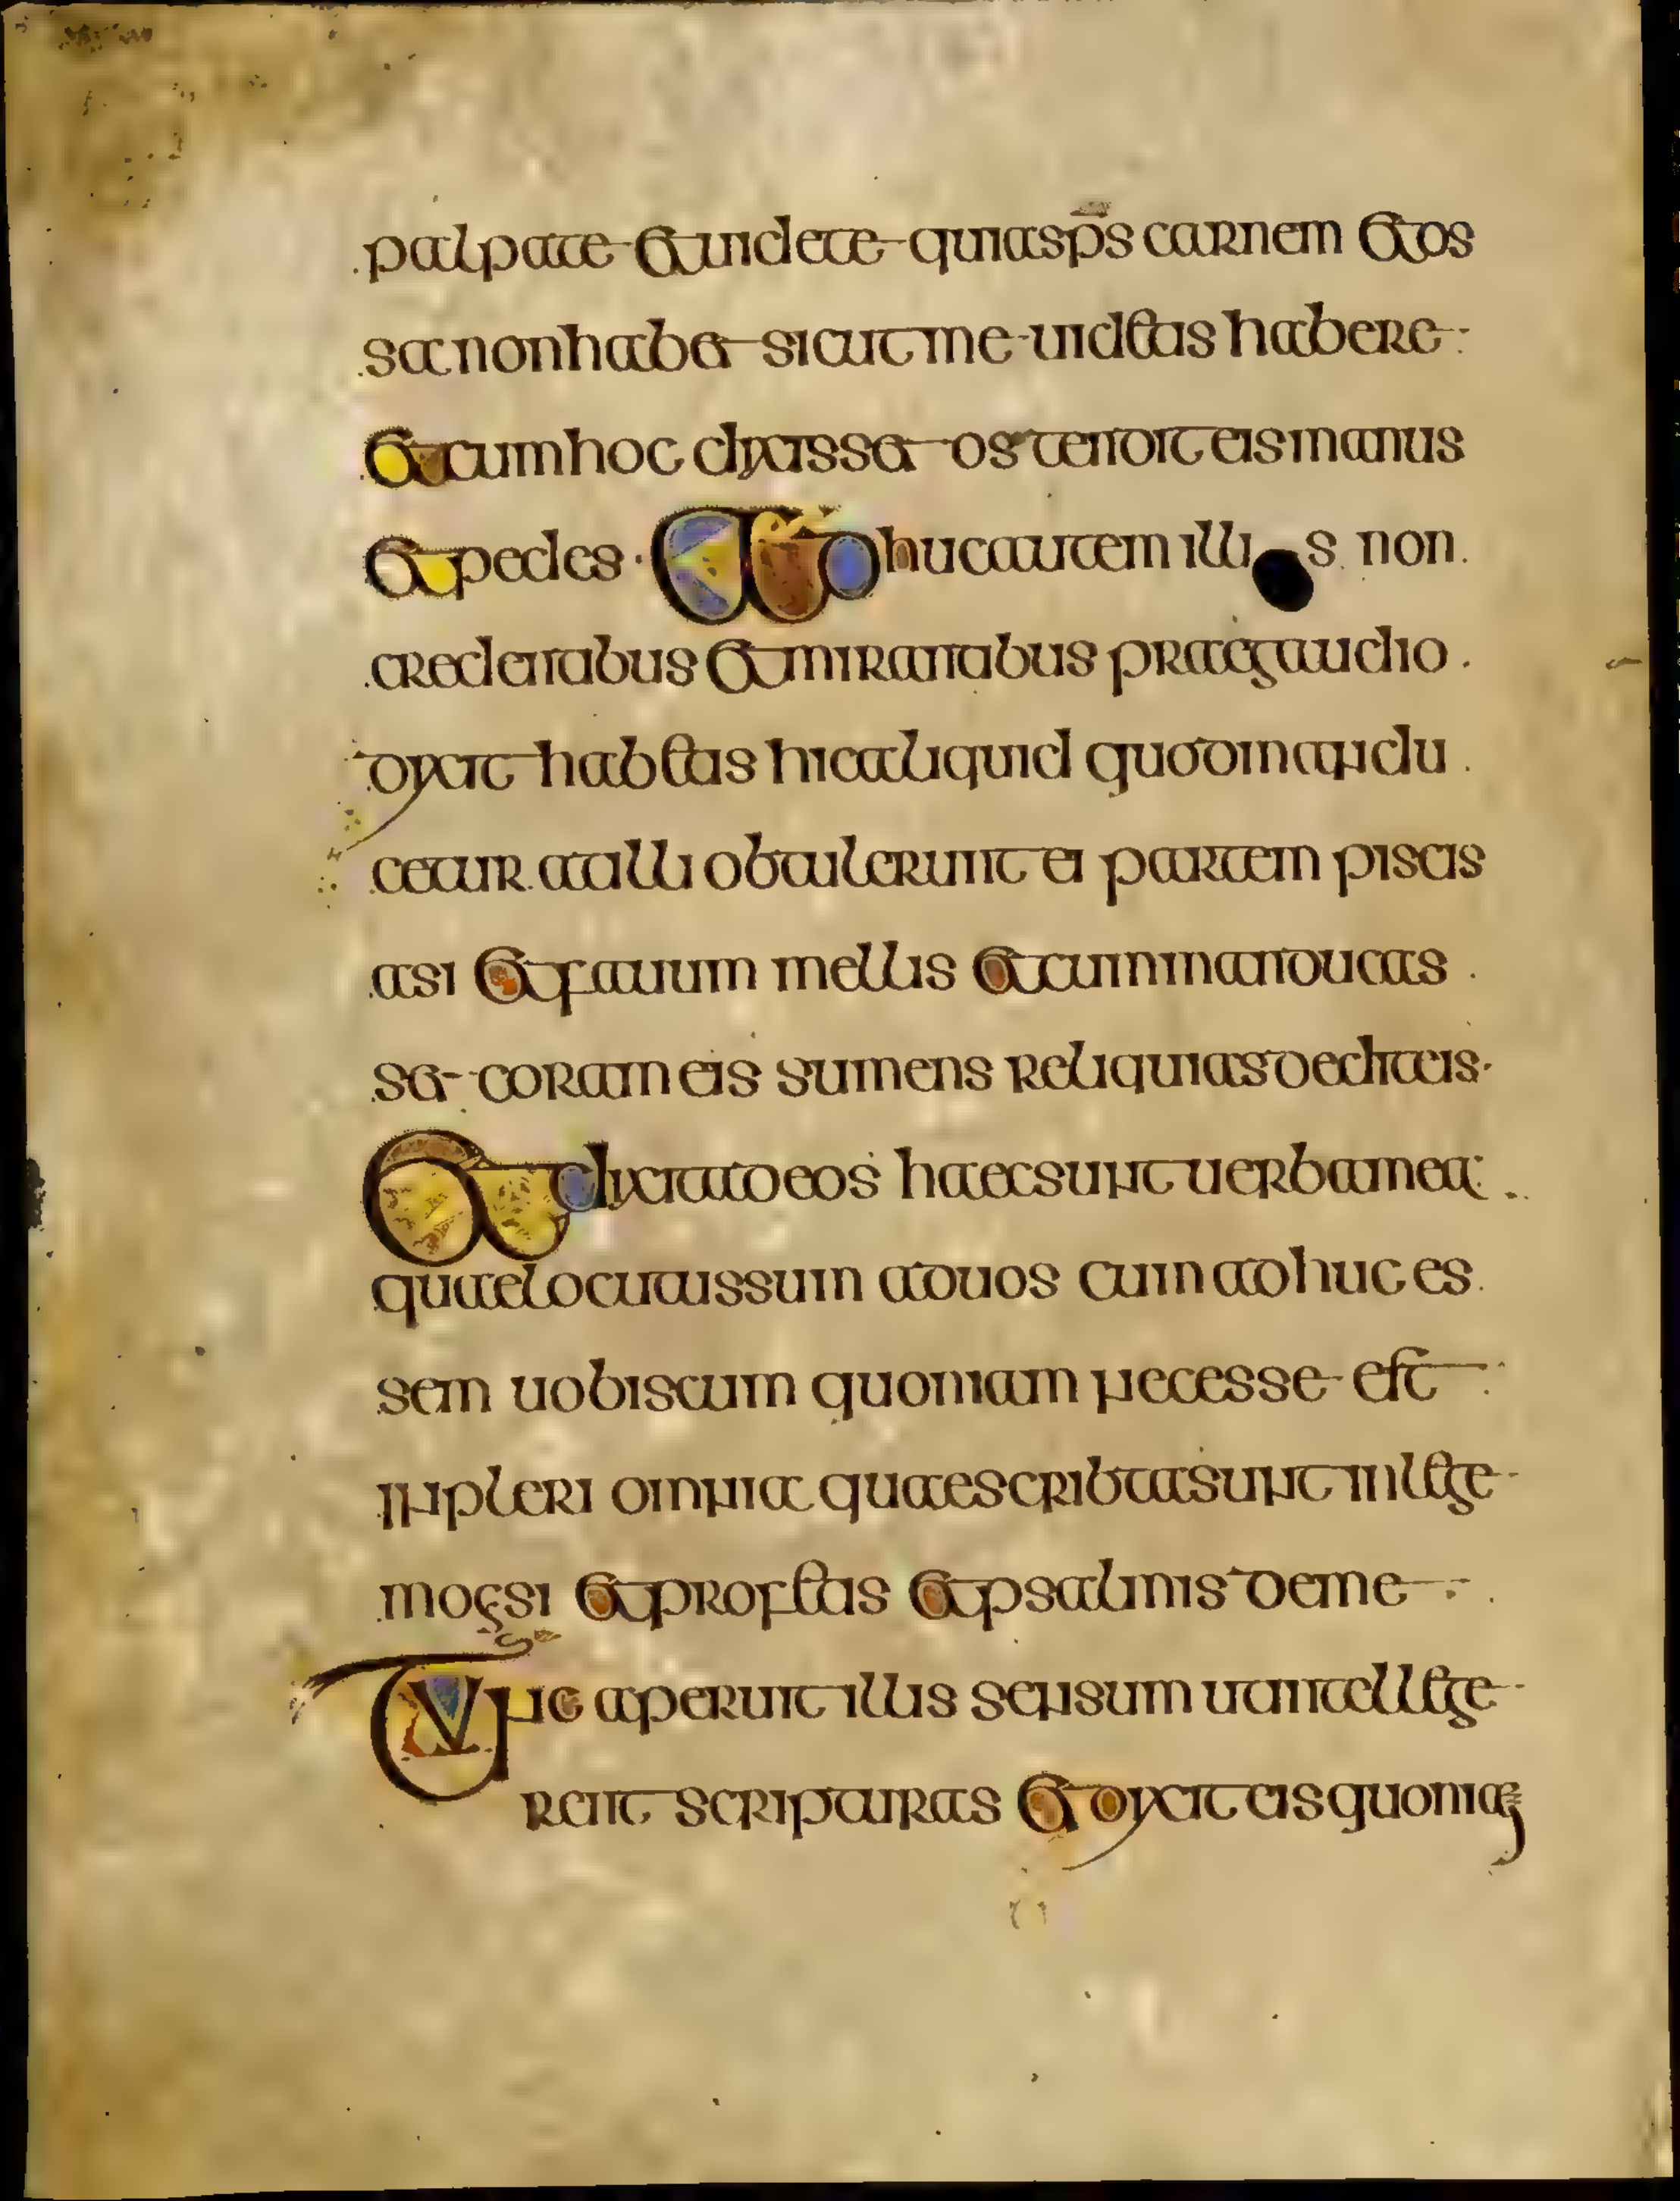 palpate et uidete quia sp̄s carnem et os
sa non habet sicut me uidetis habere
et cum hoc dixisset ostendit eis manus
et pedes · Adhuc autem illis non
credentibus et mirantibus prae gaudio
dixit habetis hic aliquid quod mandu
cetur at illi obtulerunt ei partem piscis
asi et fauum mellis et cum manducas
set coram eis sumens reliquias dedit eis
Et dixit ad eos haec sunt uerba mea
quae locutus sum ad uos cum adhuc es
sem uobiscum quoniam necesse est
inpleri omnia quae scribta sunt in lege
moysi et profetis et psalmis de me
Tunc aperuit illis sensum ut intellege
rent scripturas et dixit eis quoniam